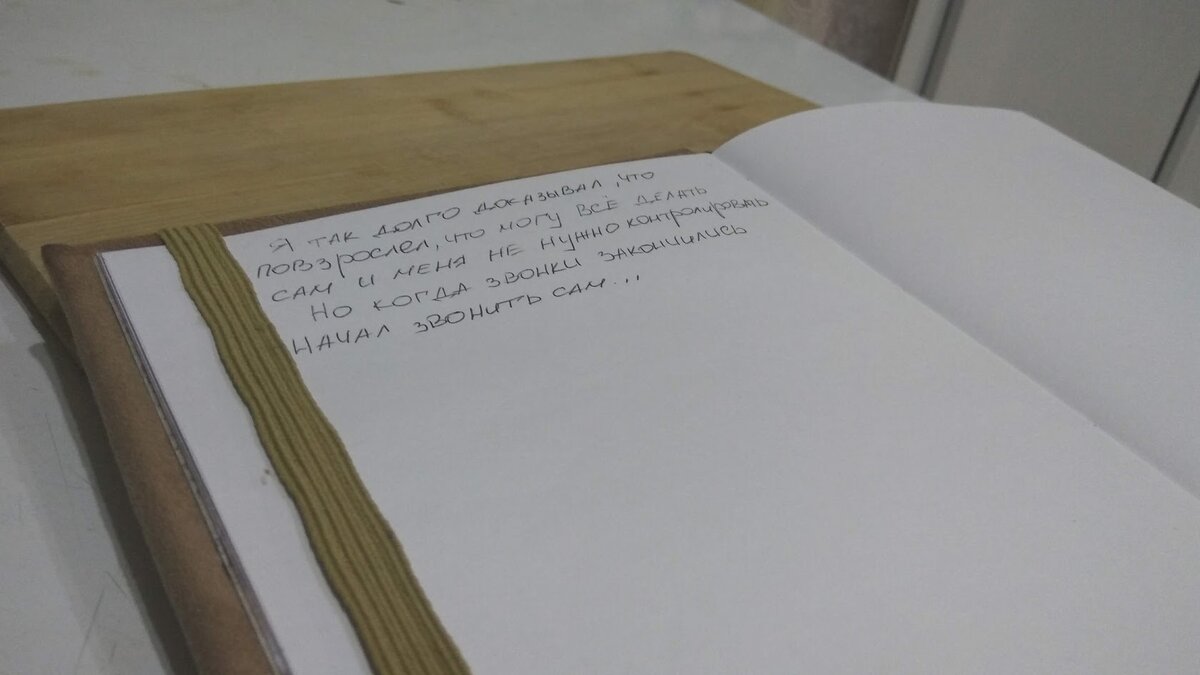 Я ТАК ДОЛГО ДОКАЗЫВАЛ, ЧТО
ПОВЗРОСЛЕЛ, ЧТО МОГУ ВСЁ ДЕЛАТЬ
САМ И МЕНЯ НЕ НУЖНО КОНТРОЛИРОВАТЬ
НО КОГДА ЗВОНКИ ЗАКОНЧИЛИСЬ
НАЧАЛ ЗВОНИТЬ САМ...